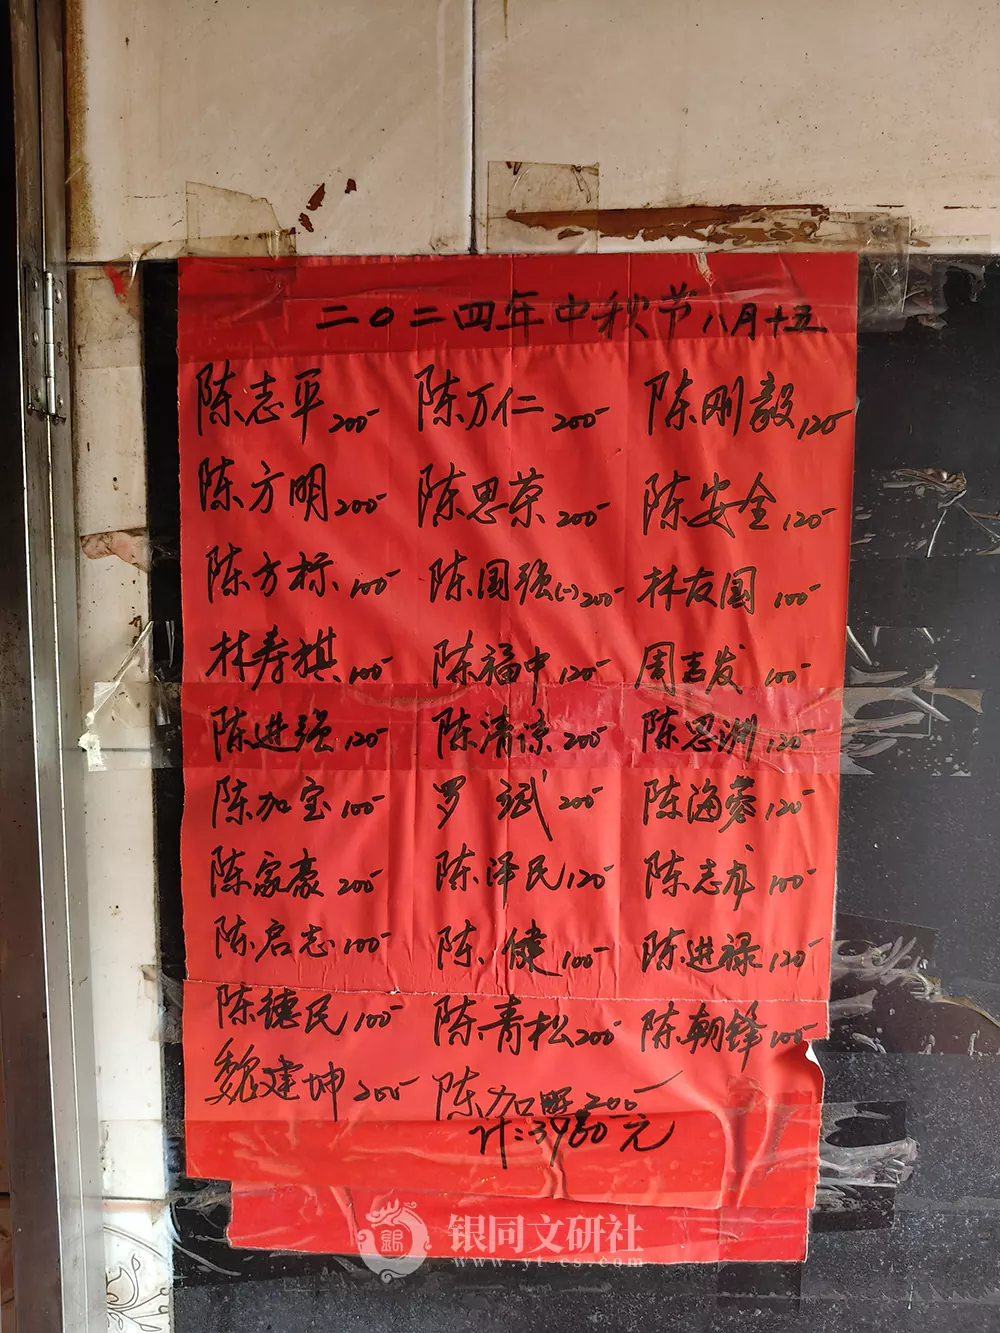 二〇二四年中秋节八月十五
陈志平200 陈万仁200 陈刚毅120
陈方明200 陈思荣200 陈安全120
陈方标100 陈国强(一)200 林友国100
林寿祺100 陈福中120 周吉发100
陈进强120 陈清凉200 陈思洲120
陈加宝100 罗斌200 陈海蓉120
陈家豪200 陈泽民120 陈志龙100
陈启志100 陈健100 陈进禄120
陈德民100 陈青松200 陈朝锋100
魏建坤200 陈加 200
计:3960元
银同文研社
www.yt-cs.com